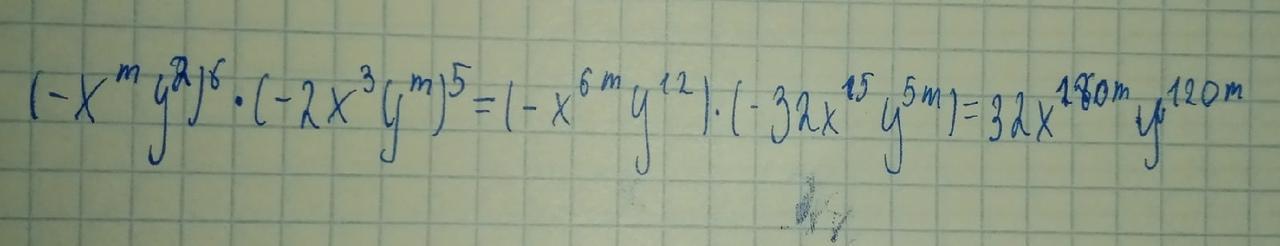 (-x^m y^2)^6 · (-2x^3 y^m)^5 = (-x^{6m} y^{12}) · (-32x^{15} y^{5m}) = 32x^{180m} y^{120m}